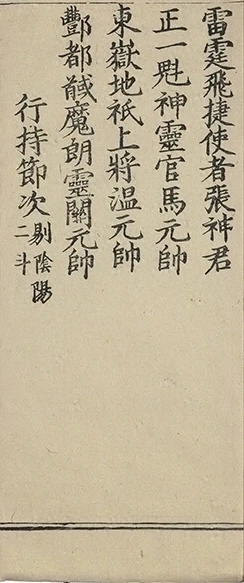 雷霆飛捷使者張神君
正一魁神靈官馬元帥
東嶽地祇上將溫元帥
酆都馘魔朗靈關元帥
行持節次剔陰陽二斗